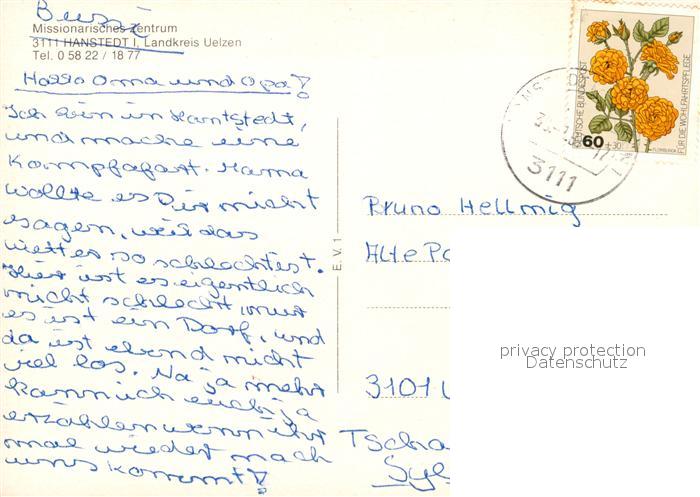 Bussi
Missionarisches Zentrum
3111 HANSTEDT I, Landkreis Uelzen
Tel. 0 58 22 / 18 77
Hallo Oma und Opa!
Ich bin in Hanstedt,
und mache eine
Mama
wollte es Dir nicht
sagen, weil das
Wetter so schlecht ist.
Hier ist es eigentlich
nicht schlecht, nur
es ist ein Dorf, und
da ist ebend nicht
viel los. Na ja mehr
kann ich euch ja
erzählen wenn ihr
mal wieder nach
uns kommt!
E. V. 1
DEUTSCHE BUNDESPOST
FÜR DIE WOHLFAHRTSPFLEGE
60 +30
FLORIBUNDA
3111
Bruno Hellmig
Alte Po
3101
Tscha
Syl
privacy protection
Datenschutz